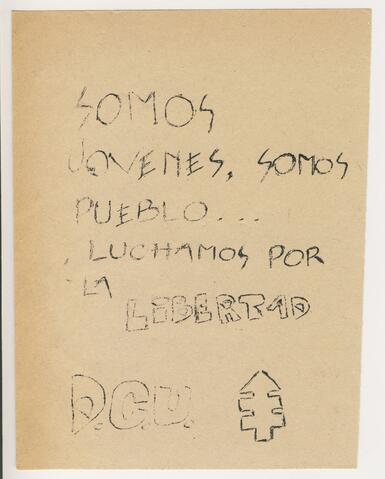 SOMOS
JOVENES, SOMOS
PUEBLO...
LUCHAMOS POR
LA
LIBERTAD
D.C.U.